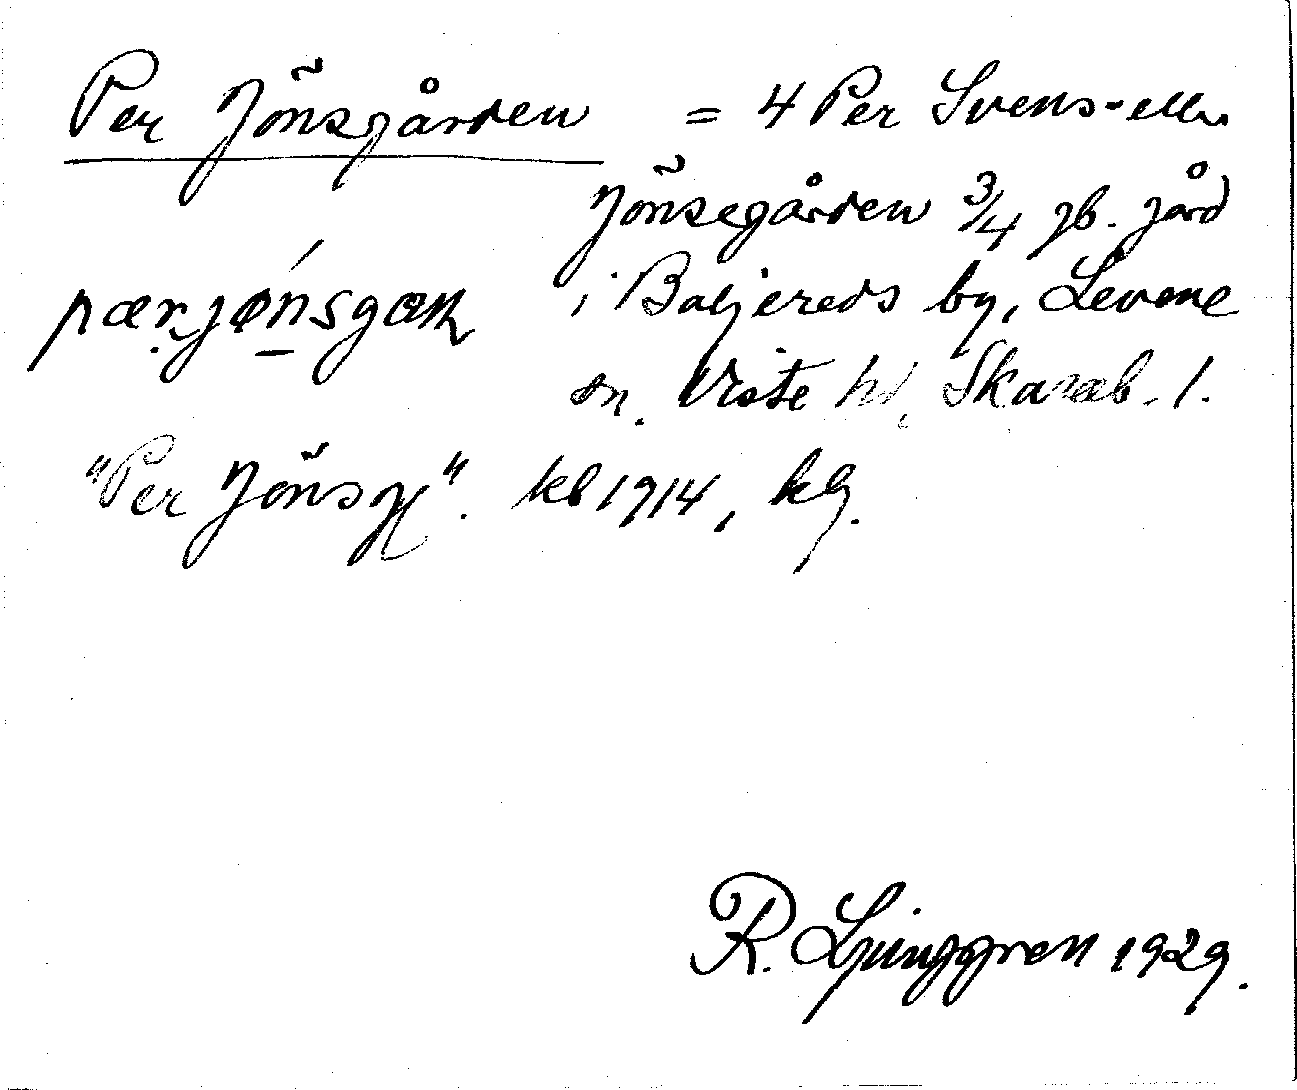 Per Jönsgården = 4 Per Svens- eller
Jönsegården 3/4 gb. jord
i Baljereds by, Levene
sn. Viste hd, Skarab. l.
pær jönsgæn
"Per Jönsg". kb 1914, klg.
R. Ljunggren 1929.